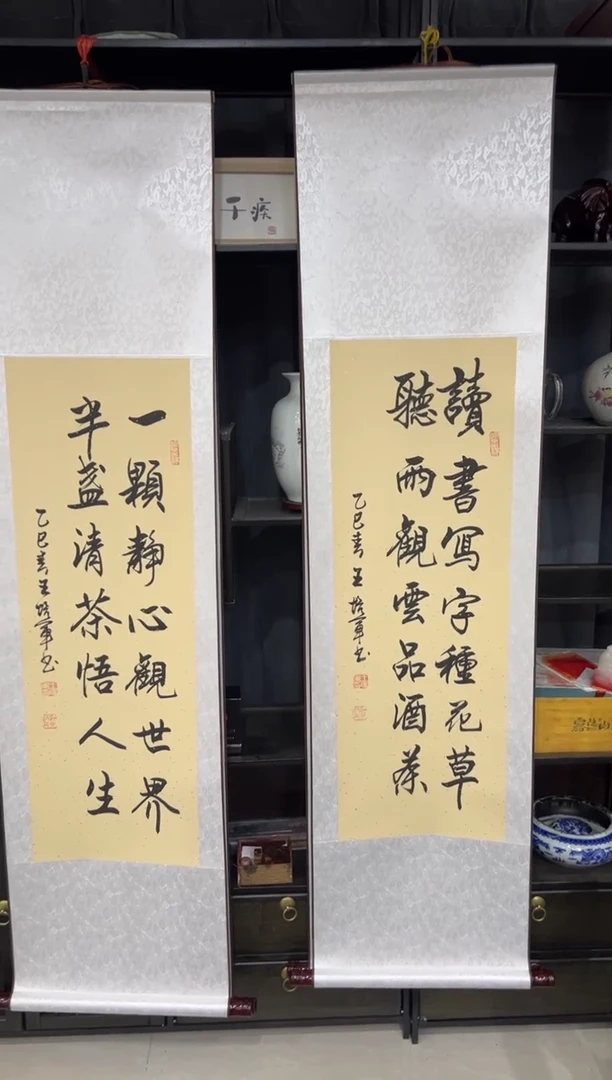 讀書寫字種花草
聽雨觀雲品酒茶
乙巳春王培軍书
一顆靜心觀世界
半盏清茶悟人生
乙巳春王培軍书